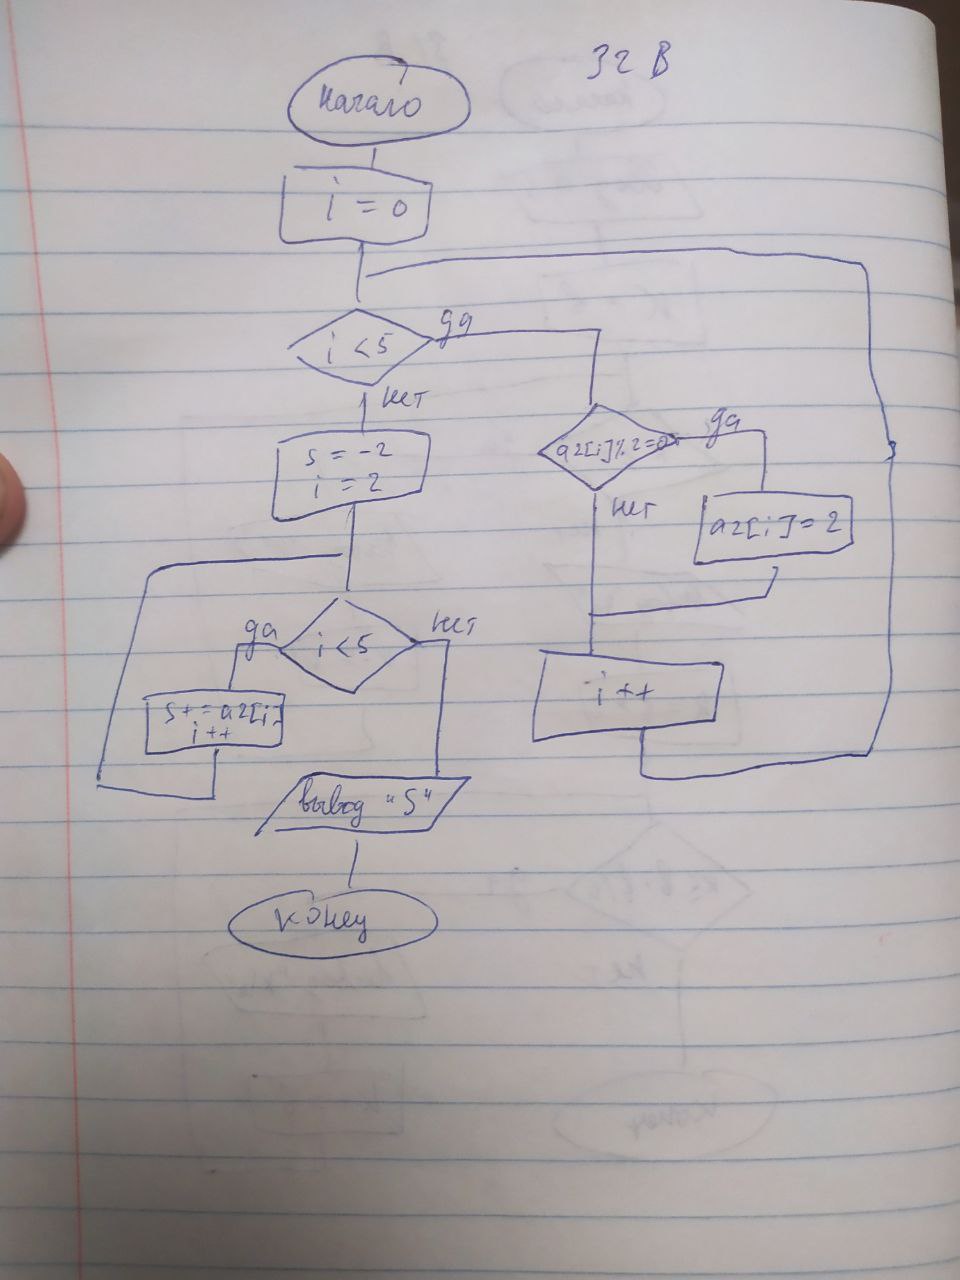 32 В
Начало
i = 0
i < 5
да
нет
a2[i]%2=0
да
нет
a2[i] = 2
s = -2
i = 2
i < 5
да
нет
i ++
s += a2[i]
i ++
вывод "S"
конец